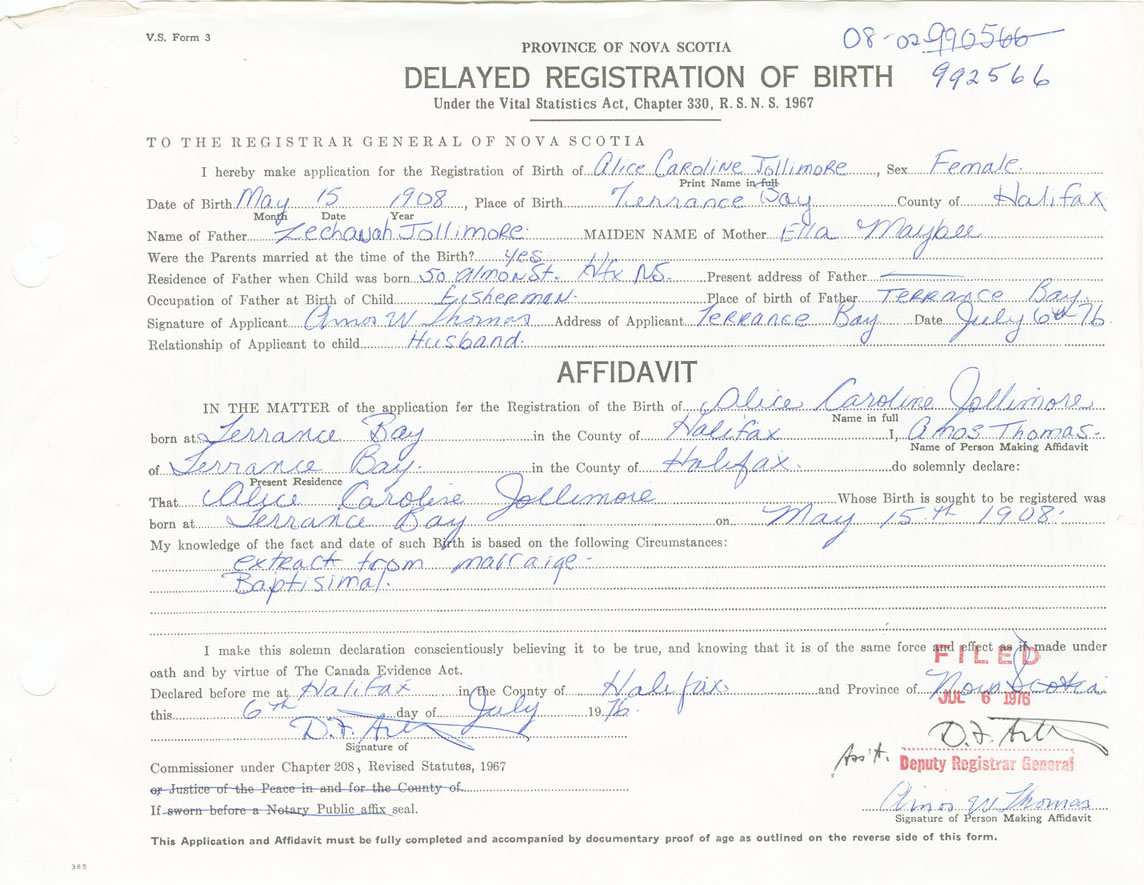 V.S. Form 3
08-02 990566
992566
PROVINCE OF NOVA SCOTIA
DELAYED REGISTRATION OF BIRTH
Under the Vital Statistics Act, Chapter 330, R. S. N. S. 1967
TO THE REGISTRAR GENERAL OF NOVA SCOTIA
I hereby make application for the Registration of Birth of Alice Caroline Jollimore, Sex Female
Print Name in full
Date of Birth May 15 1908, Place of Birth Terrance Bay County of Halifax
Month Date Year
Name of Father Zechariah Jollimore MAIDEN NAME of Mother Ella Maybee
Were the Parents married at the time of the Birth? yes
Residence of Father when Child was born 50 Almon St. Hfx NS. Present address of Father
Occupation of Father at Birth of Child Fisherman. Place of birth of Father Terrance Bay
Signature of Applicant Amos W Thomas Address of Applicant Terrance Bay Date July 6th 76
Relationship of Applicant to child Husband.
AFFIDAVIT
IN THE MATTER of the application for the Registration of the Birth of Alice Caroline Jollimore
Name in full
born at Terrance Bay in the County of Halifax I, Amos Thomas.
Name of Person Making Affidavit
of Terrance Bay. in the County of Halifax. do solemnly declare:
Present Residence
That Alice Caroline Jollimore Whose Birth is sought to be registered was
born at Terrance Bay on May 15th 1908.
My knowledge of the fact and date of such Birth is based on the following Circumstances:
extract from marraige-
Baptisimal.
I make this solemn declaration conscientiously believing it to be true, and knowing that it is of the same force and effect as if made under
oath and by virtue of The Canada Evidence Act.
FILED
Declared before me at Halifax in the County of Halifax and Province of Nova Scotia
JUL 6 1976
this 6th day of July 1976.
Signature of
Commissioner under Chapter 208, Revised Statutes, 1967
Ass't. Deputy Registrar General
or Justice of the Peace in and for the County of
If sworn before a Notary Public affix seal.
Amos W Thomas
Signature of Person Making Affidavit
This Application and Affidavit must be fully completed and accompanied by documentary proof of age as outlined on the reverse side of this form.
385